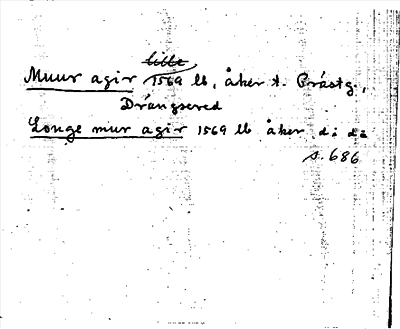 lille
Muur agir 1569 lb, åker t. Prästg.,
Drängsered
Longe mur agir 1569 lb åker d:o d:o
s. 686